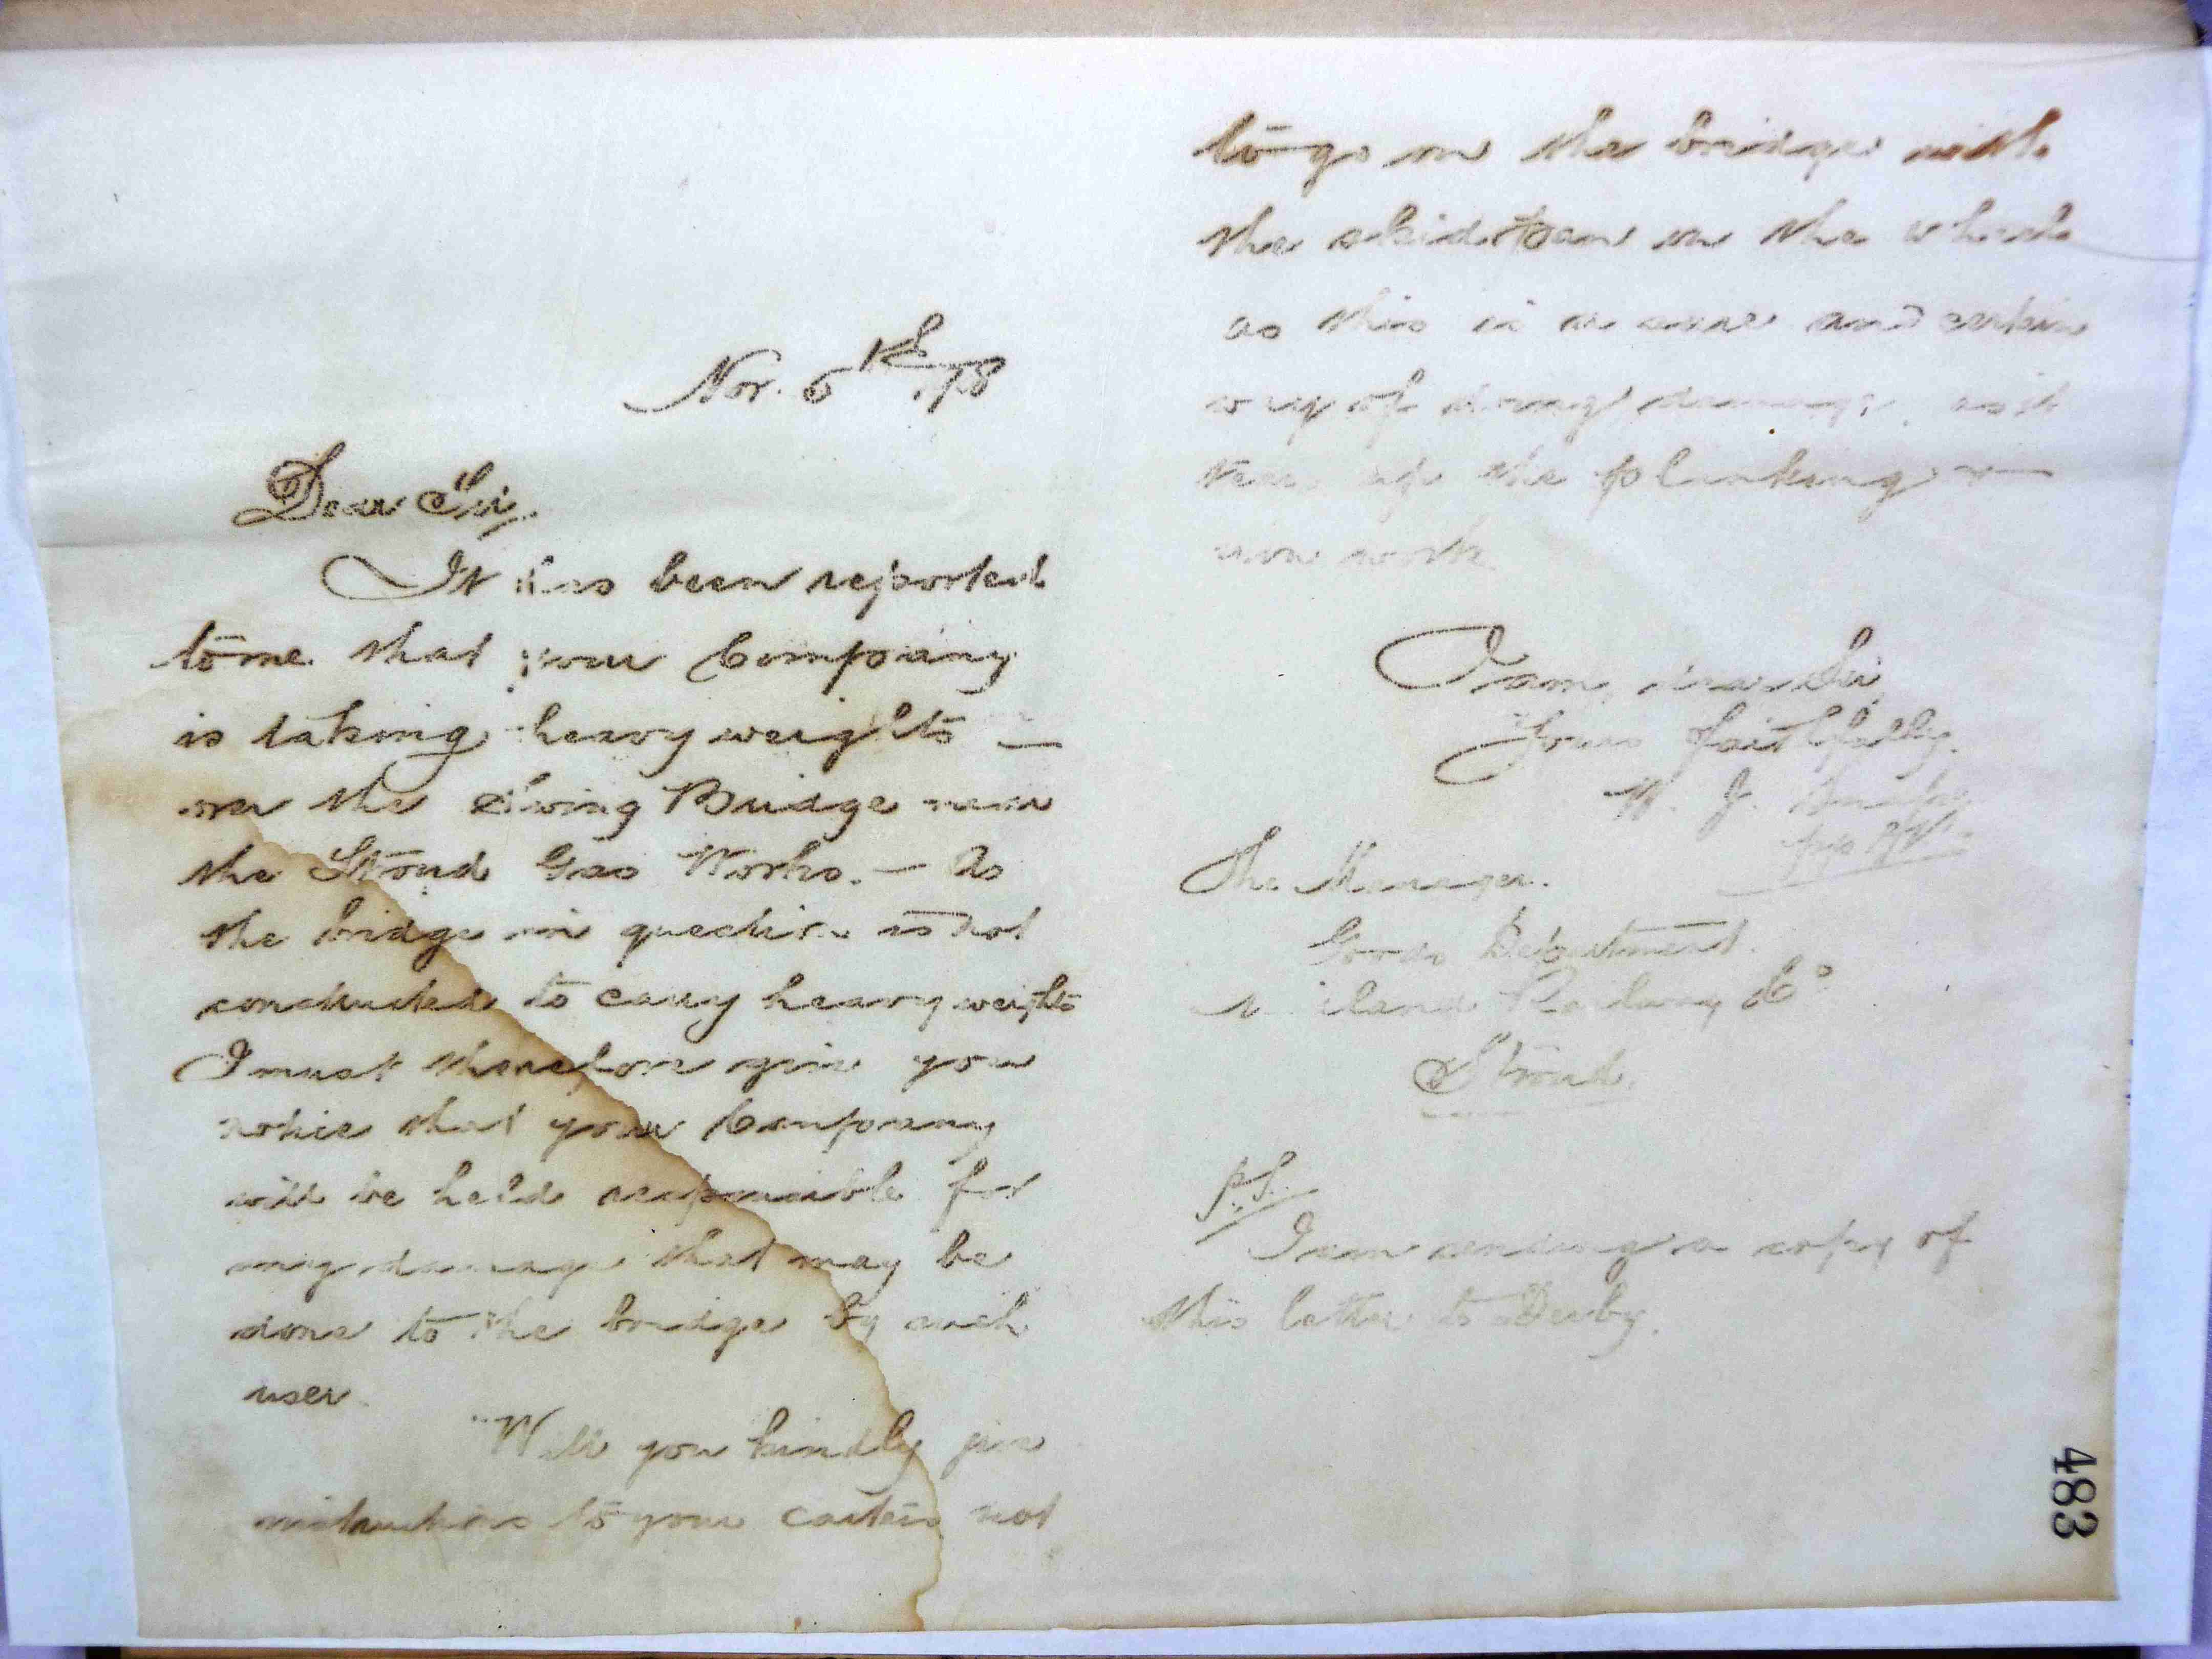 Nov. 6th /78
Dear Sir,
It has been reported
to me that your Company
is taking heavy weights —
over the Swing Bridge near
the Stroud Gas Works. — As
the bridge in question is not
constructed to carry heavy weights
I must therefore give you
notice that your Company
will be held responsible for
any damage that may be
done to the bridge by such
user.
Will you kindly give
instructions to your carters not
to go on the bridge with
the skidpan on the wheel
as this is a sure and certain
way of doing damage, as it
tears up the planking —
wood work.
I am, dear Sir,
Yours faithfully.
W. J.
pp
The Manager.
Goods Department.
Midland Railway Co
Stroud.
P.S.
I am sending a copy of
this letter to Derby.
483